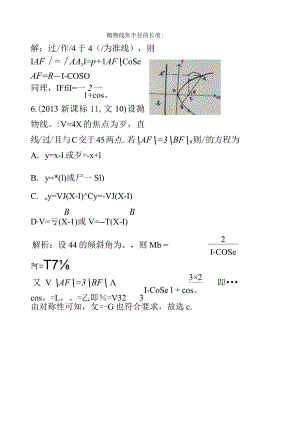 抛物线焦半径的长度:
解：过/作/4于4（/为准线），则
IAF∕=∕AA₀I=p+1AF⎩CoSe
AF=R—I-COSO
同理，IFfiI=一2一
1+cos。
6.(2013新课标11,文10)设抛
物线。:V=4X的焦点为歹，直
线/过/且与C交于45两点.若∖AF∖=3∖BF∖,则/的方程为
A. y=x-l或歹=-x+l
B. y=*(l)或尸一SI)
C. y=VJ(X-I)^Cy=-VJ(X-I)
B B
D∙V=亏(X-1)或V=--T(X-I)
解析：设44的倾斜角为。，则Mb =
2
I-COSe
阿=T7⅛
又 V∖AF∖=3∖BF∖ Λ
3×2
I-CoSe l + cos。
即•••
cos。=L,。=乙即⅝=V32 3
由对称性可知，攵=-G也符合要求，故选c.